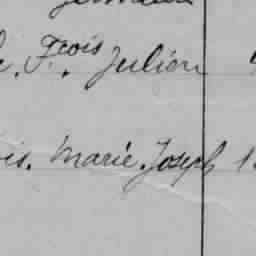 Fcois Julien
is. Marie Joseph 1